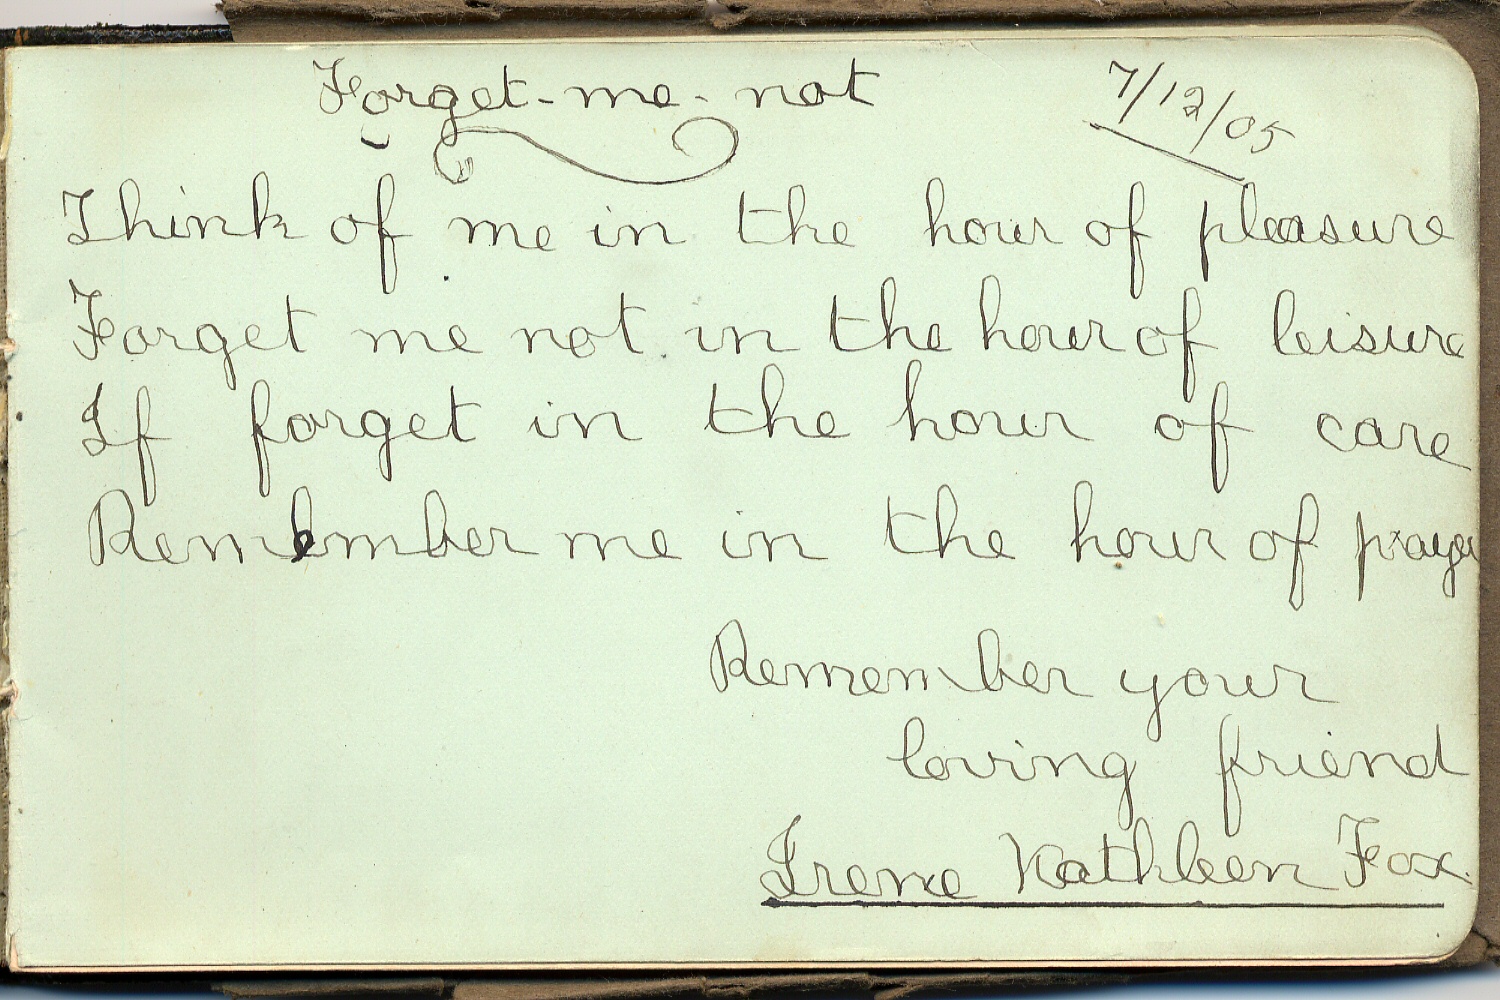 Forget-me-not
7/12/05
Think of me in the hour of pleasure
Forget me not in the hour of leisure
If forget in the hour of care
Remember me in the hour of prayer
Remember your
loving friend
Irene Kathleen Fox.